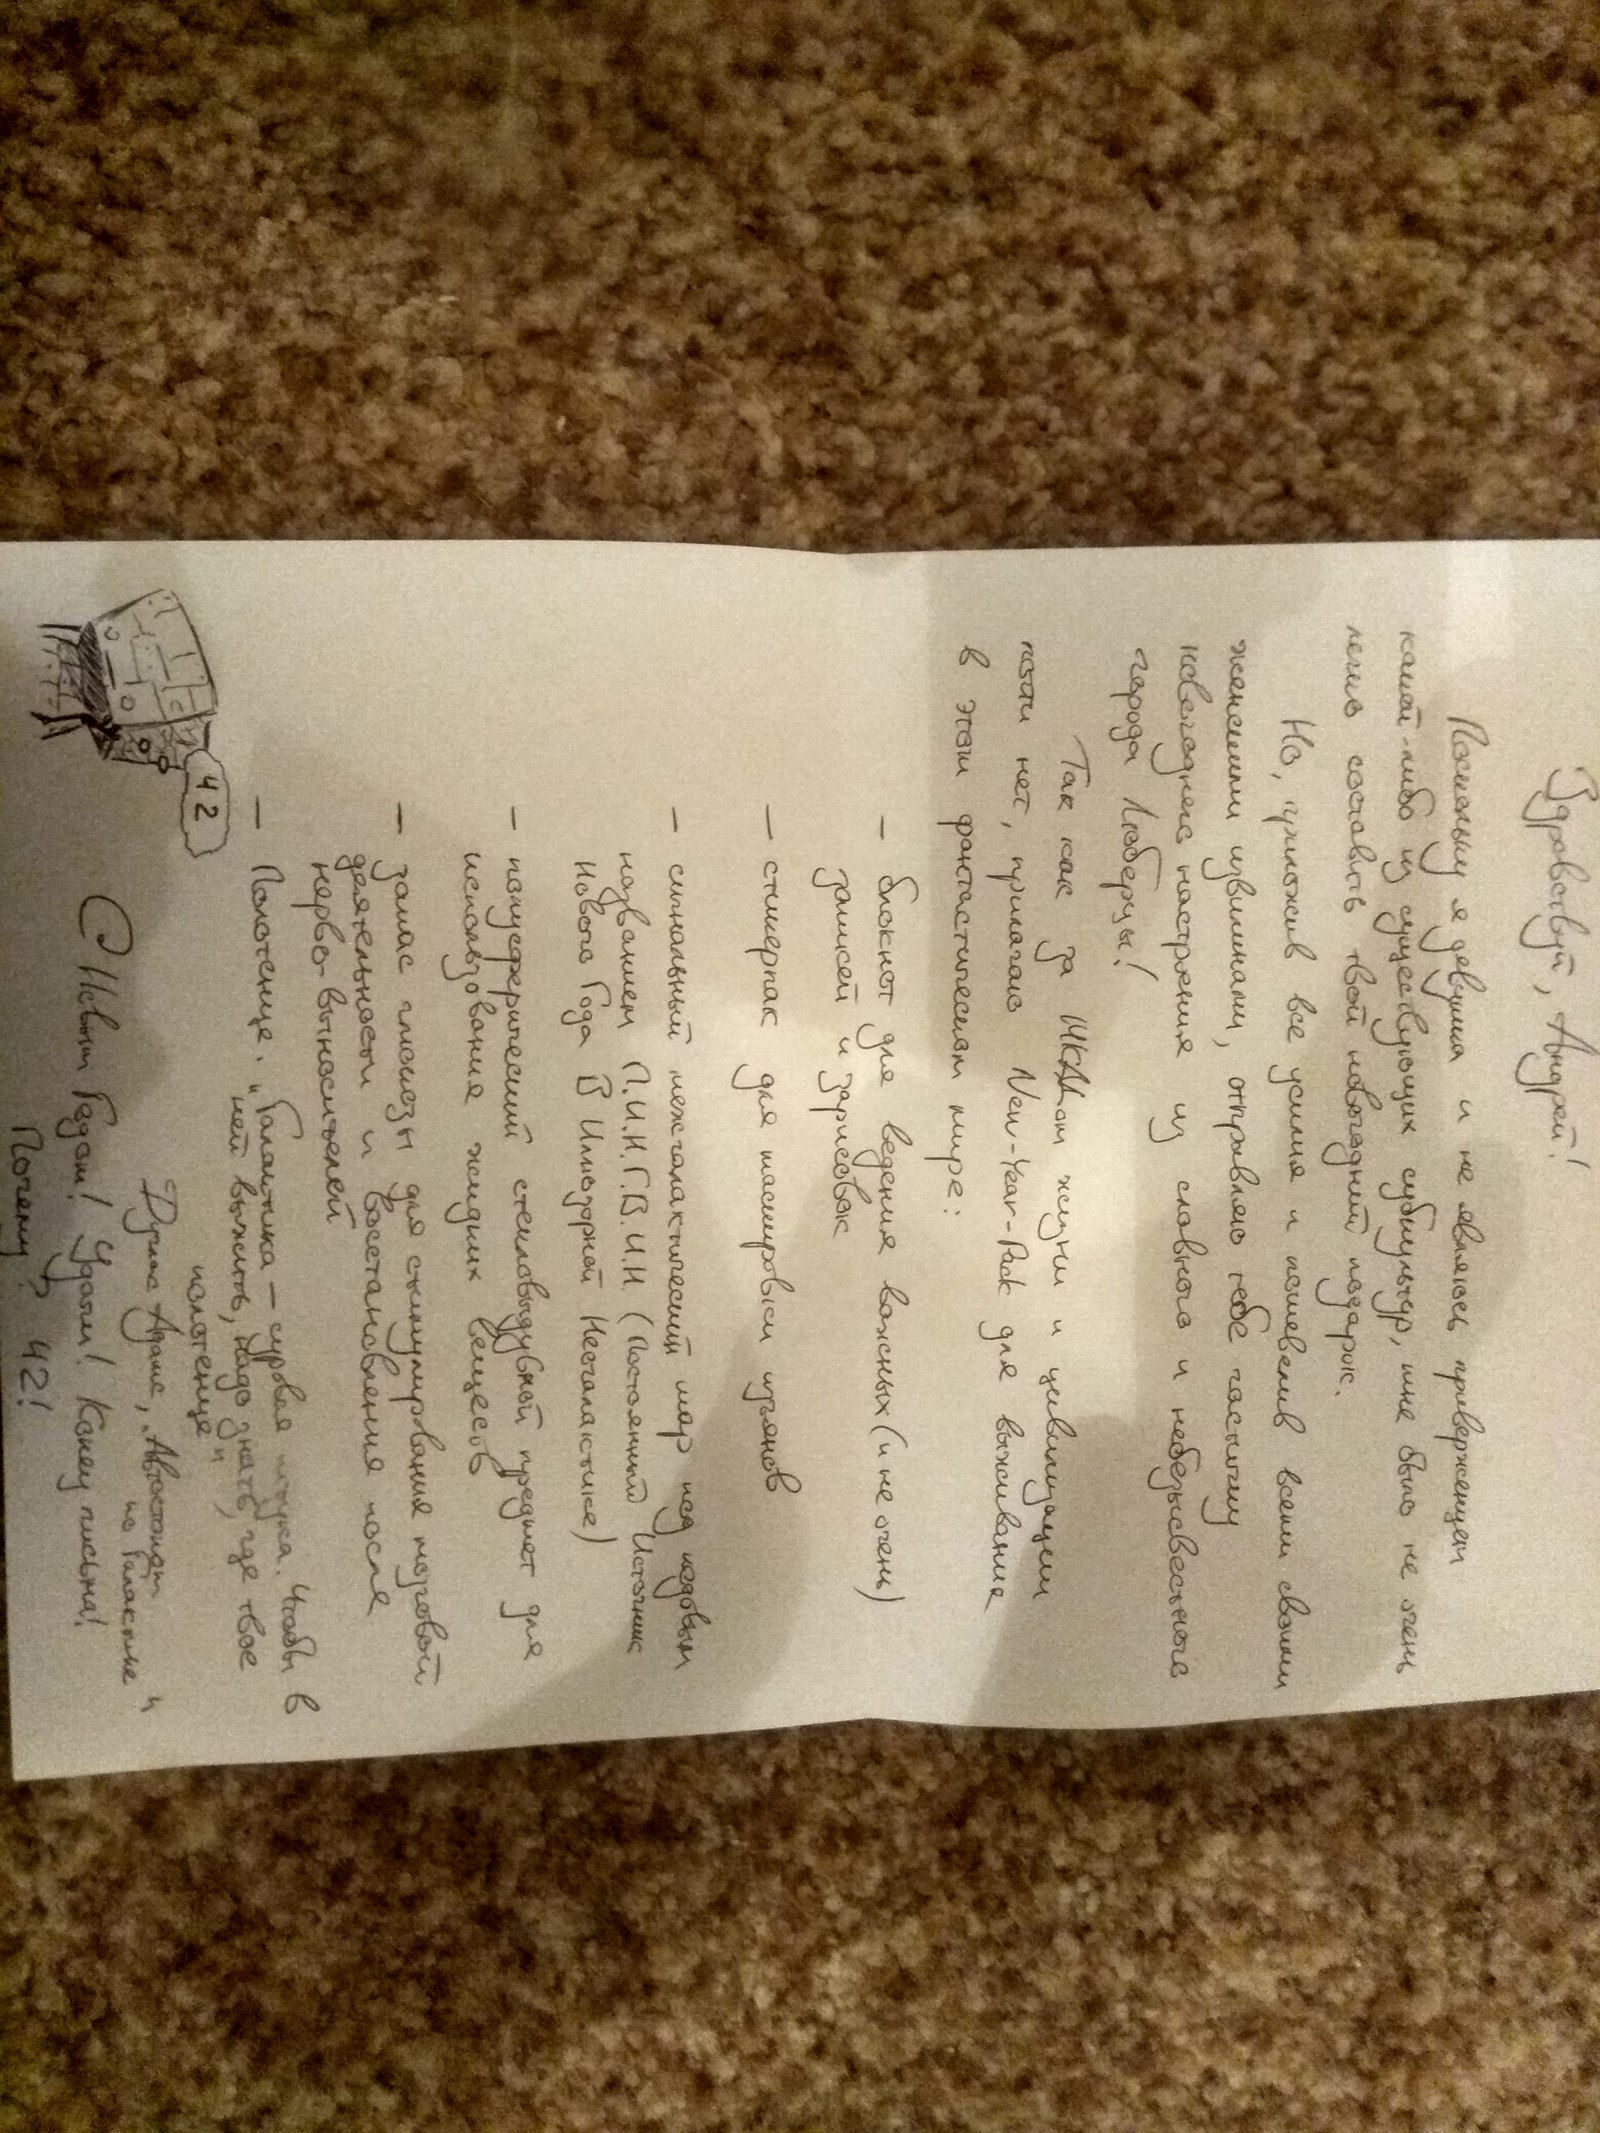 Здравствуй, Андрей!
Поскольку я девушка и не являюсь приверженцем
какой-либо из существующих субкультур, мне было не очень
легко составить твой новогодний подарок.
Но, приложив все усилия и пошевелив всеми своими
женскими извилинами, отправляю тебе частичку
новогоднего настроения из славного и небезызвестного
города Люберцы!
Так как за МКАДом жизни и цивилизации
почти нет, прилагаю New-Year-Pack для выживания
в этом фантастическом мире:
— блокнот для ведения важных (и не очень)
записей и зарисовок
— стикерпак для маскировки изъянов
— сигнальный межгалактический шар под кодовым
названием П.И.Н.Г.В.И.Н. (Постоянный Источник
Нового Года В Иллюзорной Неогалактике)
— полусферический стекловыдувной предмет для
использования жидких веществ
— запас глюкозы для стимулирования мозговой
деятельности и восстановления после
нерво-выносителей
— Полотенце. "Галактика – суровая штука. Чтобы в
ней выжить, надо знать, где твое
полотенце"
Дуглас Адамс, "Автостопом
по Галактике"
42
С Новым Годом! Удачи! Конец письма!
Почему? 42!